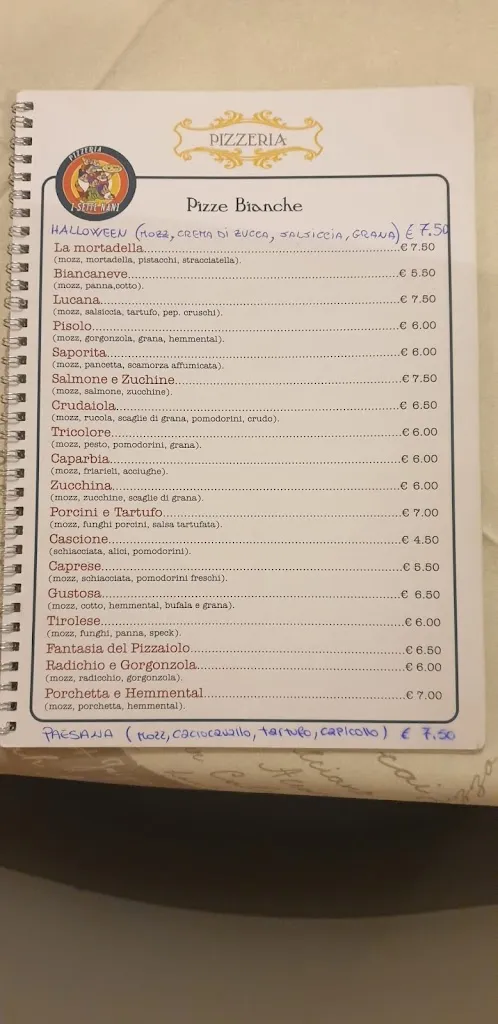 PIZZERIA
PIZZERIA
I SETTE NANI
Pizze Bianche
HALLOWEEN (MOZZ, CREMA DI ZUCCA, SALSICCIA, GRANA) € 7.50
La mortadella..........€ 7.50
(mozz, mortadella, pistacchi, stracciatella).
Biancaneve..........€ 5.50
(mozz, panna,cotto).
Lucana..........€ 7.50
(mozz, salsiccia, tartufo, pep. cruschi).
Pisolo..........€ 6.00
(mozz, gorgonzola, grana, hemmental).
Saporita..........€ 6.00
(mozz, pancetta, scamorza affumicata).
Salmone e Zuchine..........€ 7.50
(mozz, salmone, zucchine).
Crudaiola..........€ 6.50
(mozz, rucola, scaglie di grana, pomodorini, crudo).
Tricolore..........€ 6.00
(mozz, pesto, pomodorini, grana).
Caparbia..........€ 6.00
(mozz, friarieli, acciughe).
Zucchina..........€ 6.00
(mozz, zucchine, scaglie di grana).
Porcini e Tartufo..........€ 7.00
(mozz, funghi porcini, salsa tartufata).
Cascione..........€ 4.50
(schiacciata, alici, pomodorini).
Caprese..........€ 5.50
(mozz, schiacciata, pomodorini freschi).
Gustosa..........€ 6.50
(mozz, cotto, hemmental, bufala e grana).
Tirolese..........€ 6.00
(mozz, funghi, panna, speck).
Fantasia del Pizzaiolo..........€ 6.50
Radichio e Gorgonzola..........€ 6.00
(mozz, radicchio, gorgonzola).
Porchetta e Hemmental..........€ 7.00
(mozz, porchetta, hemmental).
PAESANA (MOZZ, caciocavallo, tartufo, capicollo) € 7.50